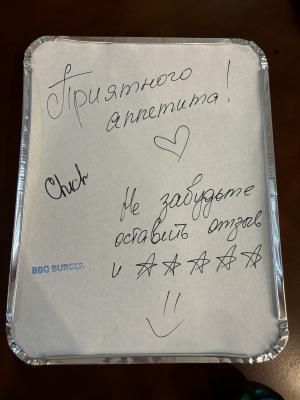 Приятного
аппетита!
♡
Chick
Не забудьте
оставить отзыв
BBQ BURGER
и ☆☆☆☆☆